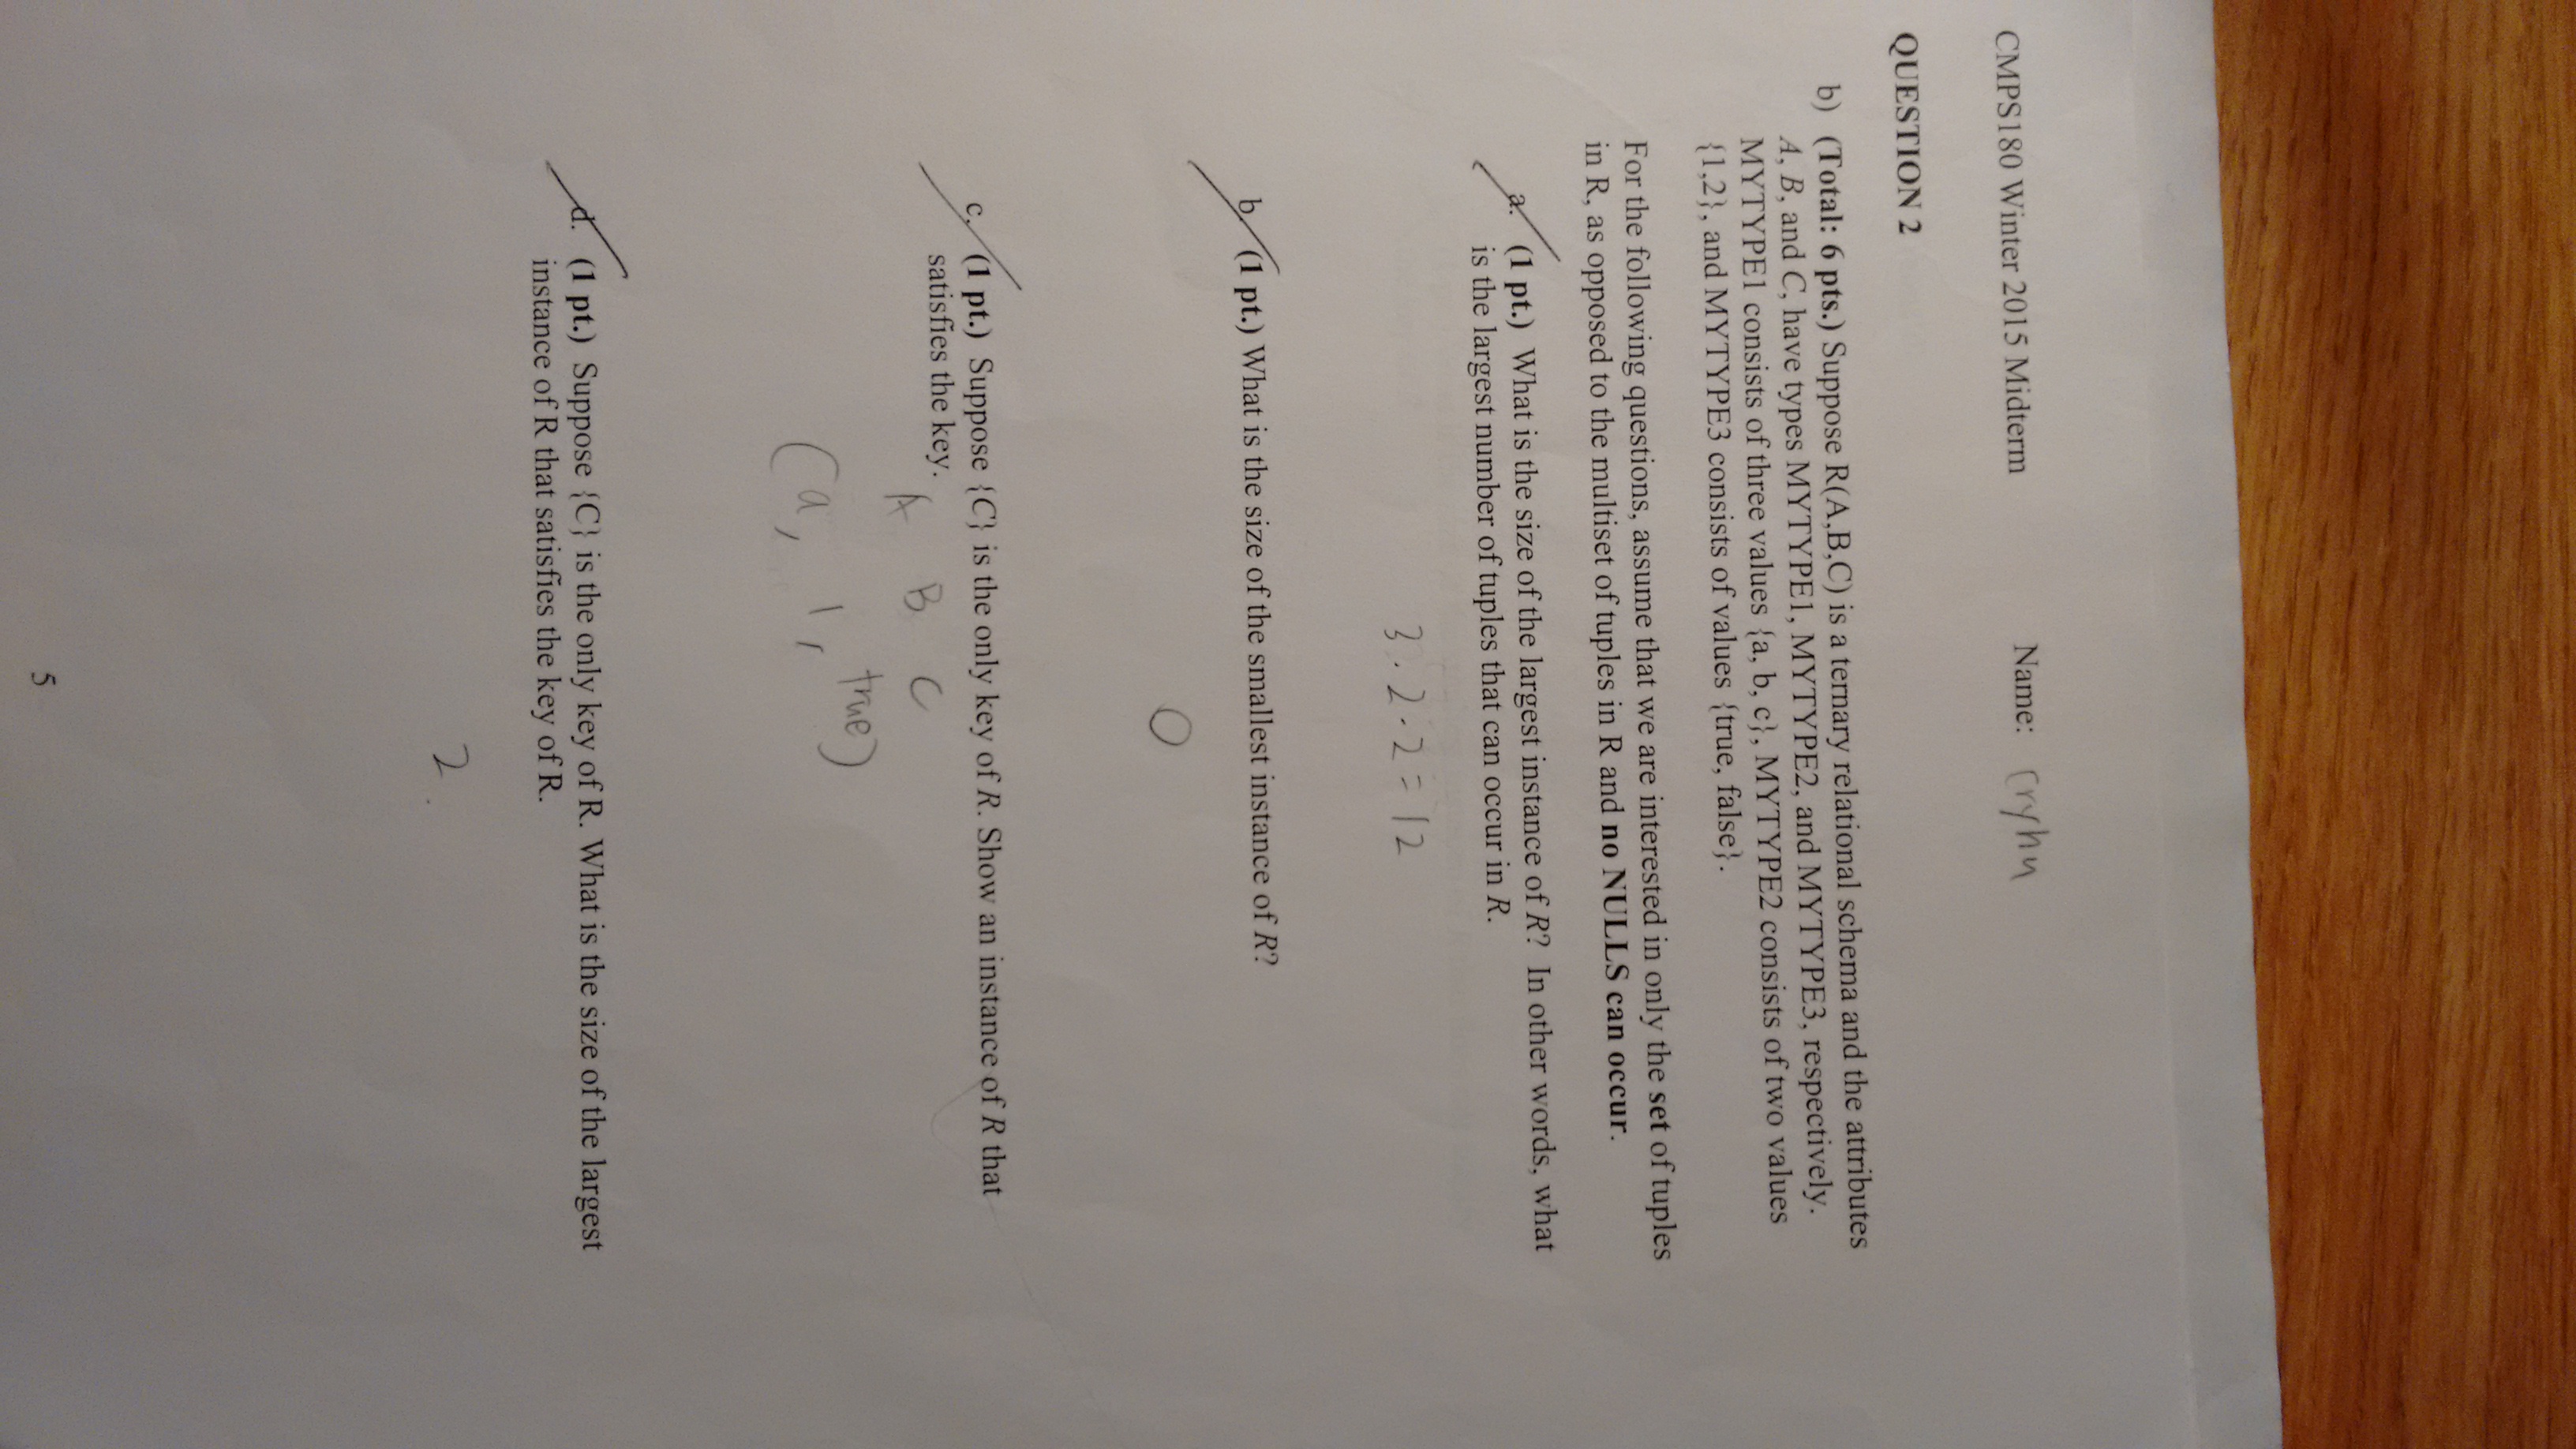 CMPS180 Winter 2015 Midterm Name: Cryhu
QUESTION 2
b) (Total: 6 pts.) Suppose R(A,B,C) is a ternary relational schema and the attributes
A, B, and C, have types MYTYPE1, MYTYPE2, and MYTYPE3, respectively.
MYTYPE1 consists of three values {a, b, c}, MYTYPE2 consists of two values
{1,2}, and MYTYPE3 consists of values {true, false}.
For the following questions, assume that we are interested in only the set of tuples
in R, as opposed to the multiset of tuples in R and no NULLS can occur.
a. (1 pt.) What is the size of the largest instance of R? In other words, what
is the largest number of tuples that can occur in R.
3 . 2 . 2 = 12
b. (1 pt.) What is the size of the smallest instance of R?
0
c. (1 pt.) Suppose {C} is the only key of R. Show an instance of R that
satisfies the key.
A B C
(a, 1, true)
d. (1 pt.) Suppose {C} is the only key of R. What is the size of the largest
instance of R that satisfies the key of R.
2.
5